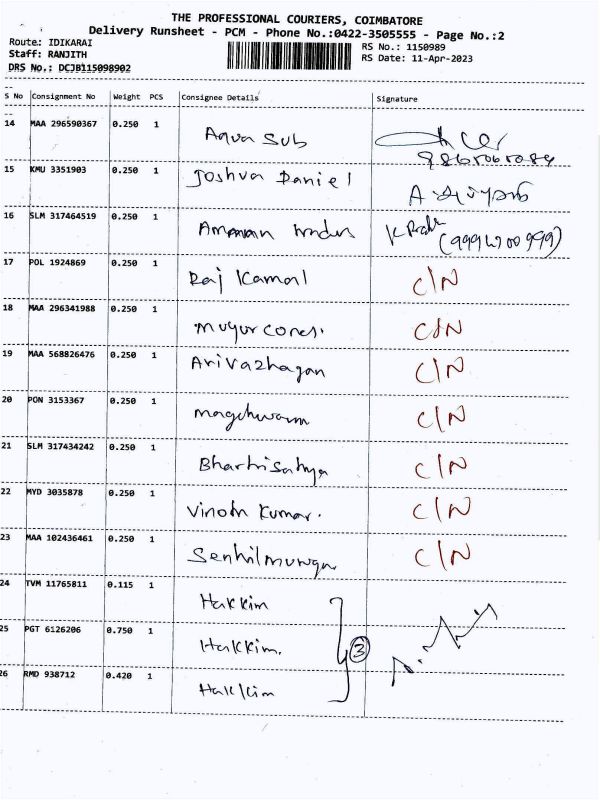 THE PROFESSIONAL COURIERS, COIMBATORE
Delivery Runsheet - PCM - Phone No.:0422-3505555 - Page No.:2
Route: IDIKARAI
RS No.: 1150989
Staff: RANJITH
RS Date: 11-Apr-2023
DRS No.: DCJB115098902
S No Consignment No Weight PCS Consignee Details Signature
14 MAA 296590367 0.250 1 Aqua Sub
15 KMU 3351903 0.250 1 Joshva Daniel
16 SLM 317464519 0.250 1
17 POL 1924869 0.250 1 Raj Kamal C/N
18 MAA 296341988 0.250 1 C/N
19 MAA 568826476 0.250 1 Arivazhagan C/N
20 PON 3153367 0.250 1 C/N
21 SLM 317434242 0.250 1 C/N
22 MYD 3035878 0.250 1 Vinoth Kumar. C/N
23 MAA 102436461 0.250 1 C/N
24 TVM 11765811 0.115 1 Hakkim
25 PGT 6126206 0.750 1 Hakkim. 3
26 RMD 938712 0.420 1 Hakkim